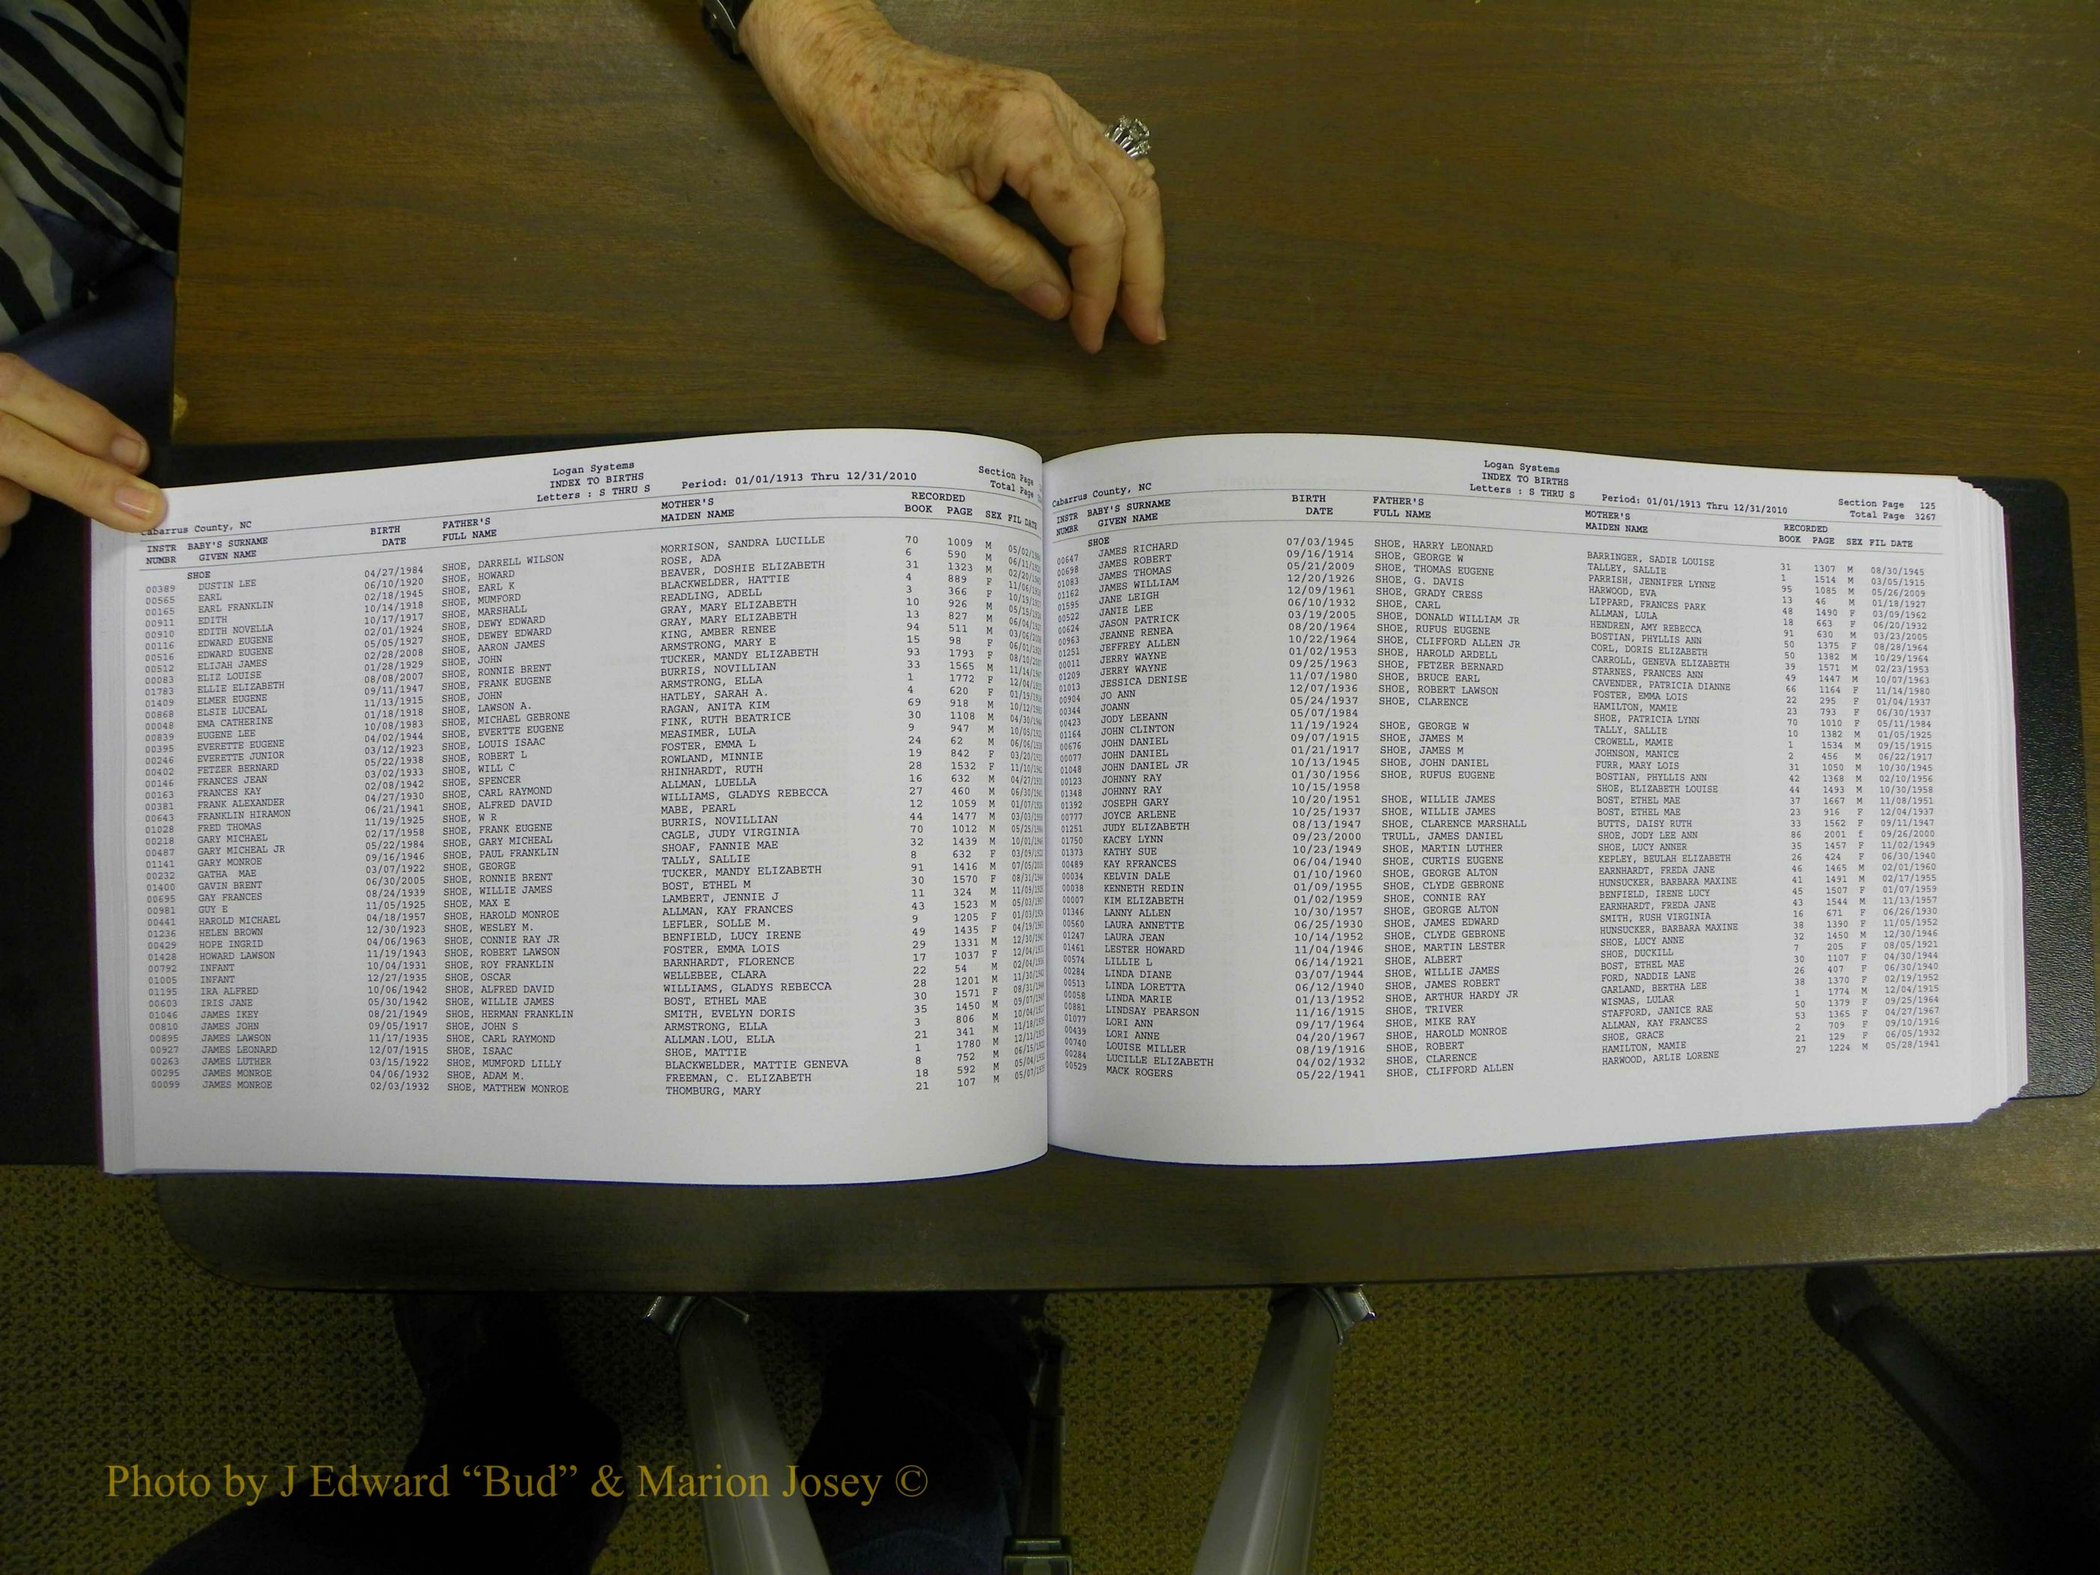 Logan Systems
INDEX TO BIRTHS
Letters : S THRU S Period: 01/01/1913 Thru 12/31/2010
Section Page
Total Page
Cabarrus County, NC
INSTR BABY'S SURNAME BIRTH FATHER'S MOTHER'S RECORDED
NUMBR GIVEN NAME DATE FULL NAME MAIDEN NAME BOOK PAGE SEX FIL DATE
SHOE
00389 DUSTIN LEE 04/27/1984 SHOE, DARRELL WILSON MORRISON, SANDRA LUCILLE 70 1009 M
00565 EARL 06/10/1920 SHOE, HOWARD ROSE, ADA 6 590 M
00165 EARL FRANKLIN 02/18/1945 SHOE, EARL K BEAVER, DOSHIE ELIZABETH 31 1323 M
00911 EDITH 10/14/1918 SHOE, MUMFORD BLACKWELDER, HATTIE 4 889 F
00910 EDITH NOVELLA 10/17/1917 SHOE, MARSHALL READLING, ADELL 3 366 F
00116 EDWARD EUGENE 02/01/1924 SHOE, DEWY EDWARD GRAY, MARY ELIZABETH 10 926 M
00516 EDWARD EUGENE 05/05/1927 SHOE, DEWEY EDWARD GRAY, MARY ELIZABETH 13 827 M
00512 ELIJAH JAMES 02/28/2008 SHOE, AARON JAMES KING, AMBER RENEE 94 511 M
00083 ELIZ LOUISE 01/28/1929 SHOE, JOHN ARMSTRONG, MARY E 15 98 F
01783 ELLIE ELIZABETH 08/08/2007 SHOE, RONNIE BRENT TUCKER, MANDY ELIZABETH 93 1793 F
01409 ELMER EUGENE 09/11/1947 SHOE, FRANK EUGENE BURRIS, NOVILLIAN 33 1565 M
00868 ELSIE LUCEAL 11/13/1915 SHOE, JOHN ARMSTRONG, ELLA 1 1772 F
00048 EMA CATHERINE 01/18/1918 SHOE, LAWSON A. HATLEY, SARAH A. 4 620 F
00839 EUGENE LEE 10/08/1983 SHOE, MICHAEL GEBRONE RAGAN, ANITA KIM 69 918 M
00395 EVERETTE EUGENE 04/02/1944 SHOE, EVERTTE EUGENE FINK, RUTH BEATRICE 30 1108 M
00246 EVERETTE JUNIOR 03/12/1923 SHOE, LOUIS ISAAC MEASIMER, LULA 9 947 M
00402 FETZER BERNARD 05/22/1938 SHOE, ROBERT L FOSTER, EMMA L 24 62 M
00146 FRANCES JEAN 03/02/1933 SHOE, WILL C ROWLAND, MINNIE 19 842 F
00163 FRANCES KAY 02/08/1942 SHOE, SPENCER RHINHARDT, RUTH 28 1532 F
00381 FRANK ALEXANDER 04/27/1930 SHOE, CARL RAYMOND ALLMAN, LUELLA 16 632 M
00643 FRANKLIN HIRAMON 06/21/1941 SHOE, ALFRED DAVID WILLIAMS, GLADYS REBECCA 27 460 M
01028 FRED THOMAS 11/19/1925 SHOE, W R MABE, PEARL 12 1059 M
00218 GARY MICHAEL 02/17/1958 SHOE, FRANK EUGENE BURRIS, NOVILLIAN 44 1477 M
00487 GARY MICHEAL JR 05/22/1984 SHOE, GARY MICHEAL CAGLE, JUDY VIRGINIA 70 1012 M
01141 GARY MONROE 09/16/1946 SHOE, PAUL FRANKLIN SHOAF, FANNIE MAE 32 1439 M
00232 GATHA MAE 03/07/1922 SHOE, GEORGE TALLY, SALLIE 8 632 F
01400 GAVIN BRENT 06/30/2005 SHOE, RONNIE BRENT TUCKER, MANDY ELIZABETH 91 1416 M
00695 GAY FRANCES 08/24/1939 SHOE, WILLIE JAMES BOST, ETHEL M 30 1570 F
00981 GUY E 11/05/1925 SHOE, MAX E LAMBERT, JENNIE J 11 324 M
00441 HAROLD MICHAEL 04/18/1957 SHOE, HAROLD MONROE ALLMAN, KAY FRANCES 43 1523 M
01236 HELEN BROWN 12/30/1923 SHOE, WESLEY M. LEFLER, SOLLE M. 9 1205 F
00429 HOPE INGRID 04/06/1963 SHOE, CONNIE RAY JR BENFIELD, LUCY IRENE 49 1435 F
01428 HOWARD LAWSON 11/19/1943 SHOE, ROBERT LAWSON FOSTER, EMMA LOIS 29 1331 M
00792 INFANT 10/04/1931 SHOE, ROY FRANKLIN BARNHARDT, FLORENCE 17 1037 F
01005 INFANT 12/27/1935 SHOE, OSCAR WELLEBEE, CLARA 22 54 M
01195 IRA ALFRED 10/06/1942 SHOE, ALFRED DAVID WILLIAMS, GLADYS REBECCA 28 1201 M
00603 IRIS JANE 05/30/1942 SHOE, WILLIE JAMES BOST, ETHEL MAE 30 1571 F
01046 JAMES IKEY 08/21/1949 SHOE, HERMAN FRANKLIN SMITH, EVELYN DORIS 35 1450 M
00810 JAMES JOHN 09/05/1917 SHOE, JOHN S ARMSTRONG, ELLA 3 806 M
00895 JAMES LAWSON 11/17/1935 SHOE, CARL RAYMOND ALLMAN.LOU, ELLA 21 341 M
00927 JAMES LEONARD 12/07/1915 SHOE, ISAAC SHOE, MATTIE 1 1780 M
00263 JAMES LUTHER 03/15/1922 SHOE, MUMFORD LILLY BLACKWELDER, MATTIE GENEVA 8 752 M
00295 JAMES MONROE 04/06/1932 SHOE, ADAM M. FREEMAN, C. ELIZABETH 18 592 M
00099 JAMES MONROE 02/03/1932 SHOE, MATTHEW MONROE THOMBURG, MARY 21 107 M
Logan Systems
INDEX TO BIRTHS
Letters : S THRU S Period: 01/01/1913 Thru 12/31/2010
Section Page 125
Total Page 3267
Cabarrus County, NC
INSTR BABY'S SURNAME BIRTH FATHER'S MOTHER'S RECORDED
NUMBR GIVEN NAME DATE FULL NAME MAIDEN NAME BOOK PAGE SEX FIL DATE
SHOE
00647 JAMES RICHARD 07/03/1945 SHOE, HARRY LEONARD BARRINGER, SADIE LOUISE 31 1307 M 08/30/1945
00698 JAMES ROBERT 09/16/1914 SHOE, GEORGE W TALLEY, SALLIE 1 1514 M 03/05/1915
01083 JAMES THOMAS 05/21/2009 SHOE, THOMAS EUGENE PARRISH, JENNIFER LYNNE 95 1085 M 05/26/2009
01162 JAMES WILLIAM 12/20/1926 SHOE, G. DAVIS HARWOOD, EVA 13 46 M 01/18/1927
01595 JANE LEIGH 12/09/1961 SHOE, GRADY CRESS LIPPARD, FRANCES PARK 48 1490 F 03/09/1962
00522 JANIE LEE 06/10/1932 SHOE, CARL ALLMAN, LULA 18 663 F 06/20/1932
00624 JASON PATRICK 03/19/2005 SHOE, DONALD WILLIAM JR HENDREN, AMY REBECCA 91 630 M 03/23/2005
00963 JEANNE RENEA 08/20/1964 SHOE, RUFUS EUGENE BOSTIAN, PHYLLIS ANN 50 1375 F 08/28/1964
01251 JEFFREY ALLEN 10/22/1964 SHOE, CLIFFORD ALLEN JR CORL, DORIS ELIZABETH 50 1382 M 10/29/1964
00011 JERRY WAYNE 01/02/1953 SHOE, HAROLD ARDELL CARROLL, GENEVA ELIZABETH 39 1571 M 02/23/1953
01209 JERRY WAYNE 09/25/1963 SHOE, FETZER BERNARD STARNES, FRANCES ANN 49 1447 M 10/07/1963
01013 JESSICA DENISE 11/07/1980 SHOE, BRUCE EARL CAVENDER, PATRICIA DIANNE 66 1164 F 11/14/1980
00904 JO ANN 12/07/1936 SHOE, ROBERT LAWSON FOSTER, EMMA LOIS 22 295 F 01/04/1937
00344 JOANN 05/24/1937 SHOE, CLARENCE HAMILTON, MAMIE 23 793 F 06/30/1937
00423 JODY LEEANN 05/07/1984 SHOE, PATRICIA LYNN 70 1010 F 05/11/1984
01164 JOHN CLINTON 11/19/1924 SHOE, GEORGE W TALLY, SALLIE 10 1382 M 01/05/1925
00676 JOHN DANIEL 09/07/1915 SHOE, JAMES M CROWELL, MAMIE 1 1534 M 09/15/1915
00077 JOHN DANIEL 01/21/1917 SHOE, JAMES M JOHNSON, MANICE 2 456 M 06/22/1917
01048 JOHN DANIEL JR 10/13/1945 SHOE, JOHN DANIEL FURR, MARY LOIS 31 1050 M 10/30/1945
00123 JOHNNY RAY 01/30/1956 SHOE, RUFUS EUGENE BOSTIAN, PHYLLIS ANN 42 1368 M 02/10/1956
01348 JOHNNY RAY 10/15/1958 SHOE, ELIZABETH LOUISE 44 1493 M 10/30/1958
01392 JOSEPH GARY 10/20/1951 SHOE, WILLIE JAMES BOST, ETHEL MAE 37 1667 M 11/08/1951
00777 JOYCE ARLENE 10/25/1937 SHOE, WILLIE JAMES BOST, ETHEL MAE 23 916 F 12/04/1937
01251 JUDY ELIZABETH 08/13/1947 SHOE, CLARENCE MARSHALL BUTTS, DAISY RUTH 33 1562 F 09/11/1947
01750 KACEY LYNN 09/23/2000 TRULL, JAMES DANIEL SHOE, JODY LEE ANN 86 2001 f 09/26/2000
01373 KATHY SUE 10/23/1949 SHOE, MARTIN LUTHER SHOE, LUCY ANNER 35 1457 F 11/02/1949
00489 KAY RFRANCES 06/04/1940 SHOE, CURTIS EUGENE KEPLEY, BEULAH ELIZABETH 26 424 F 06/30/1940
00034 KELVIN DALE 01/10/1960 SHOE, GEORGE ALTON EARNHARDT, FREDA JANE 46 1465 M 02/01/1960
00038 KENNETH REDIN 01/09/1955 SHOE, CLYDE GEBRONE HUNSUCKER, BARBARA MAXINE 41 1491 M 02/17/1955
00007 KIM ELIZABETH 01/02/1959 SHOE, CONNIE RAY BENFIELD, IRENE LUCY 45 1507 F 01/07/1959
01346 LANNY ALLEN 10/30/1957 SHOE, GEORGE ALTON EARNHARDT, FREDA JANE 43 1544 M 11/13/1957
00560 LAURA ANNETTE 06/25/1930 SHOE, JAMES EDWARD SMITH, RUSH VIRGINIA 16 671 F 06/26/1930
01247 LAURA JEAN 10/14/1952 SHOE, CLYDE GEBRONE HUNSUCKER, BARBARA MAXINE 38 1390 F 11/05/1952
01461 LESTER HOWARD 11/04/1946 SHOE, MARTIN LESTER SHOE, LUCY ANNE 32 1450 M 12/30/1946
00574 LILLIE L 06/14/1921 SHOE, ALBERT SHOE, DUCKILL 7 205 F 08/05/1921
00284 LINDA DIANE 03/07/1944 SHOE, WILLIE JAMES BOST, ETHEL MAE 30 1107 F 04/30/1944
00513 LINDA LORETTA 06/12/1940 SHOE, JAMES ROBERT FORD, NADDIE LANE 26 407 F 06/30/1940
00058 LINDA MARIE 01/13/1952 SHOE, ARTHUR HARDY JR GARLAND, BERTHA LEE 38 1370 F 02/19/1952
00881 LINDSAY PEARSON 11/16/1915 SHOE, TRIVER WISMAS, LULAR 1 1774 M 12/04/1915
01077 LORI ANN 09/17/1964 SHOE, MIKE RAY STAFFORD, JANICE RAE 50 1379 F 09/25/1964
00439 LORI ANNE 04/20/1967 SHOE, HAROLD MONROE ALLMAN, KAY FRANCES 53 1365 F 04/27/1967
00740 LOUISE MILLER 08/19/1916 SHOE, ROBERT SHOE, GRACE 2 709 F 09/10/1916
00284 LUCILLE ELIZABETH 04/02/1932 SHOE, CLARENCE HAMILTON, MAMIE 21 129 F 06/05/1932
00529 MACK ROGERS 05/22/1941 SHOE, CLIFFORD ALLEN HARWOOD, ARLIE LORENE 27 1224 M 05/28/1941
Photo by J Edward “Bud” & Marion Josey ©